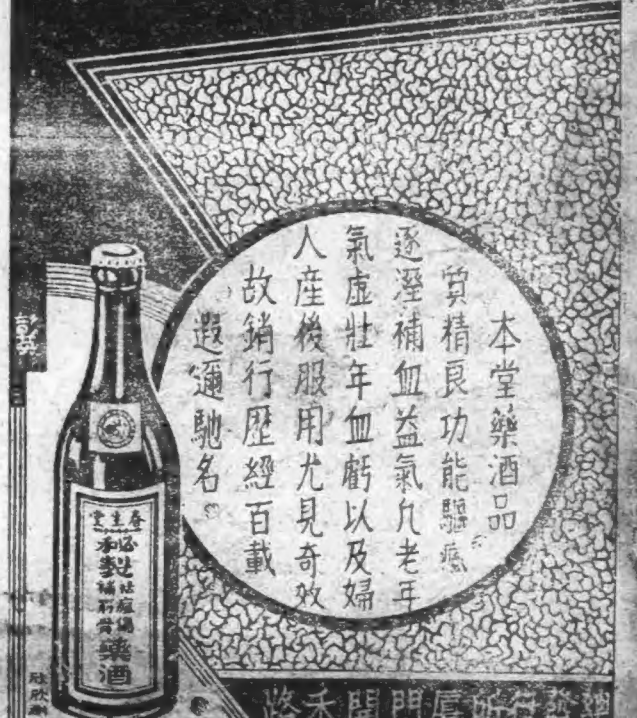 本堂藥酒品
質精良功能驅瘋
逐溼補血益氣凢老年
氣虛壯年血虧以及婦
人產後服用尤見奇效
故銷行歷經百載
遐邇馳名。
春生堂
秘製
祛瘋
藥酒
總發行所厦門開禾路